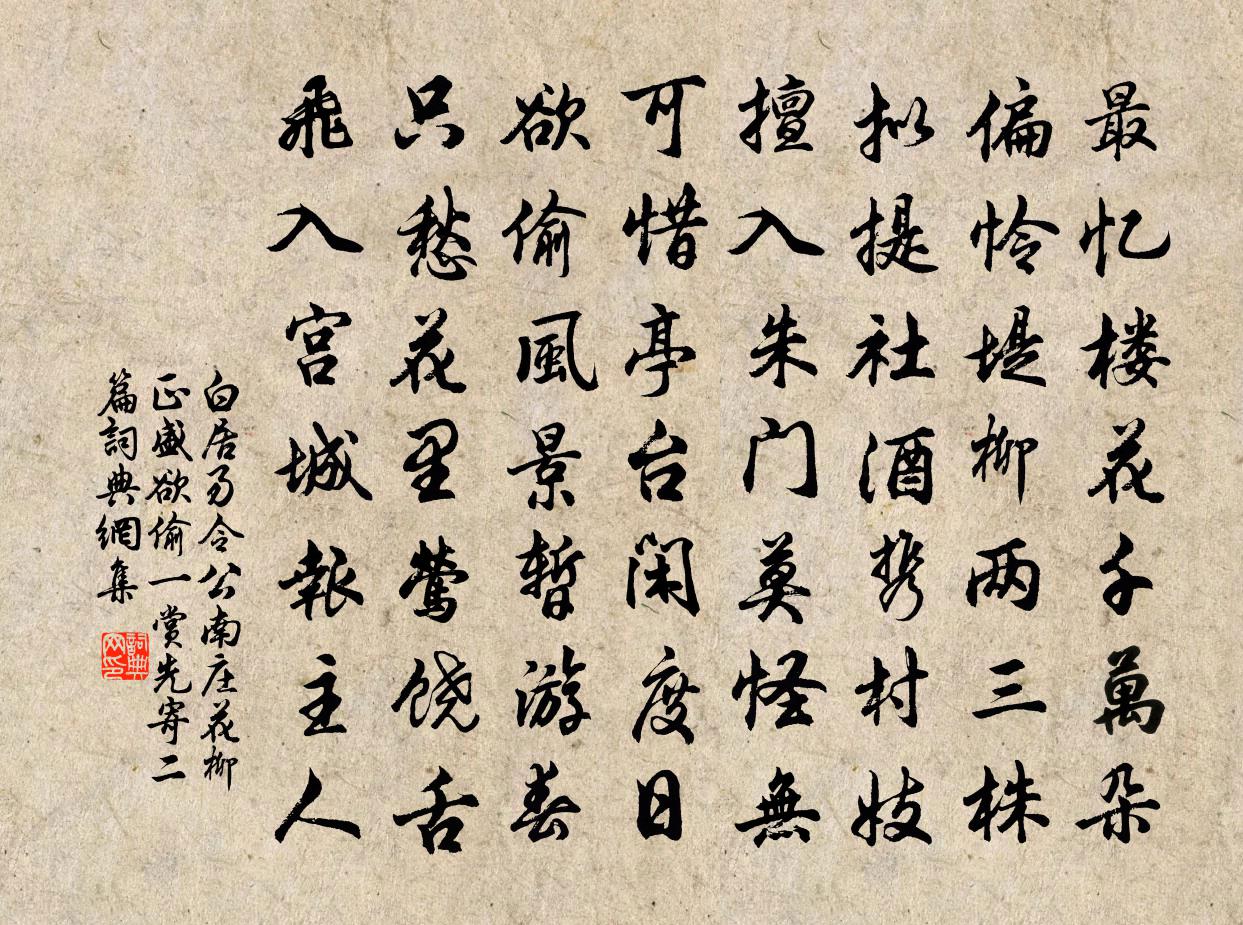 最忆楼花千萬朵
偏怜堤柳两三株
拟提社酒携村妓
擅入朱门莫怪無
可惜亭台闲度日
欲偷風景暫游春
只愁花里莺饶舌
飛入宫城報主人
白居易令公南庄花柳
正盛欲偷一赏先寄二
篇詞典網集
詞典
网印